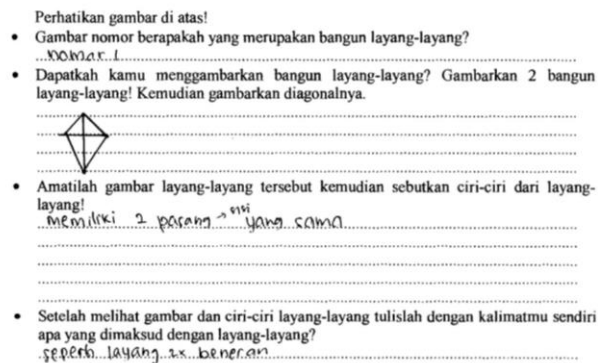 Perhatikan gambar di atas!
• Gambar nomor berapakah yang merupakan bangun layang-layang?
nomar 1
• Dapatkah kamu menggambarkan bangun layang-layang? Gambarkan 2 bangun
layang-layang! Kemudian gambarkan diagonalnya.
• Amatilah gambar layang-layang tersebut kemudian sebutkan ciri-ciri dari layang-
layang!
memiliki 2 pasang → sisi yang sama
• Setelah melihat gambar dan ciri-ciri layang-layang tulislah dengan kalimatmu sendiri
apa yang dimaksud dengan layang-layang?
seperti layang 2x beneran